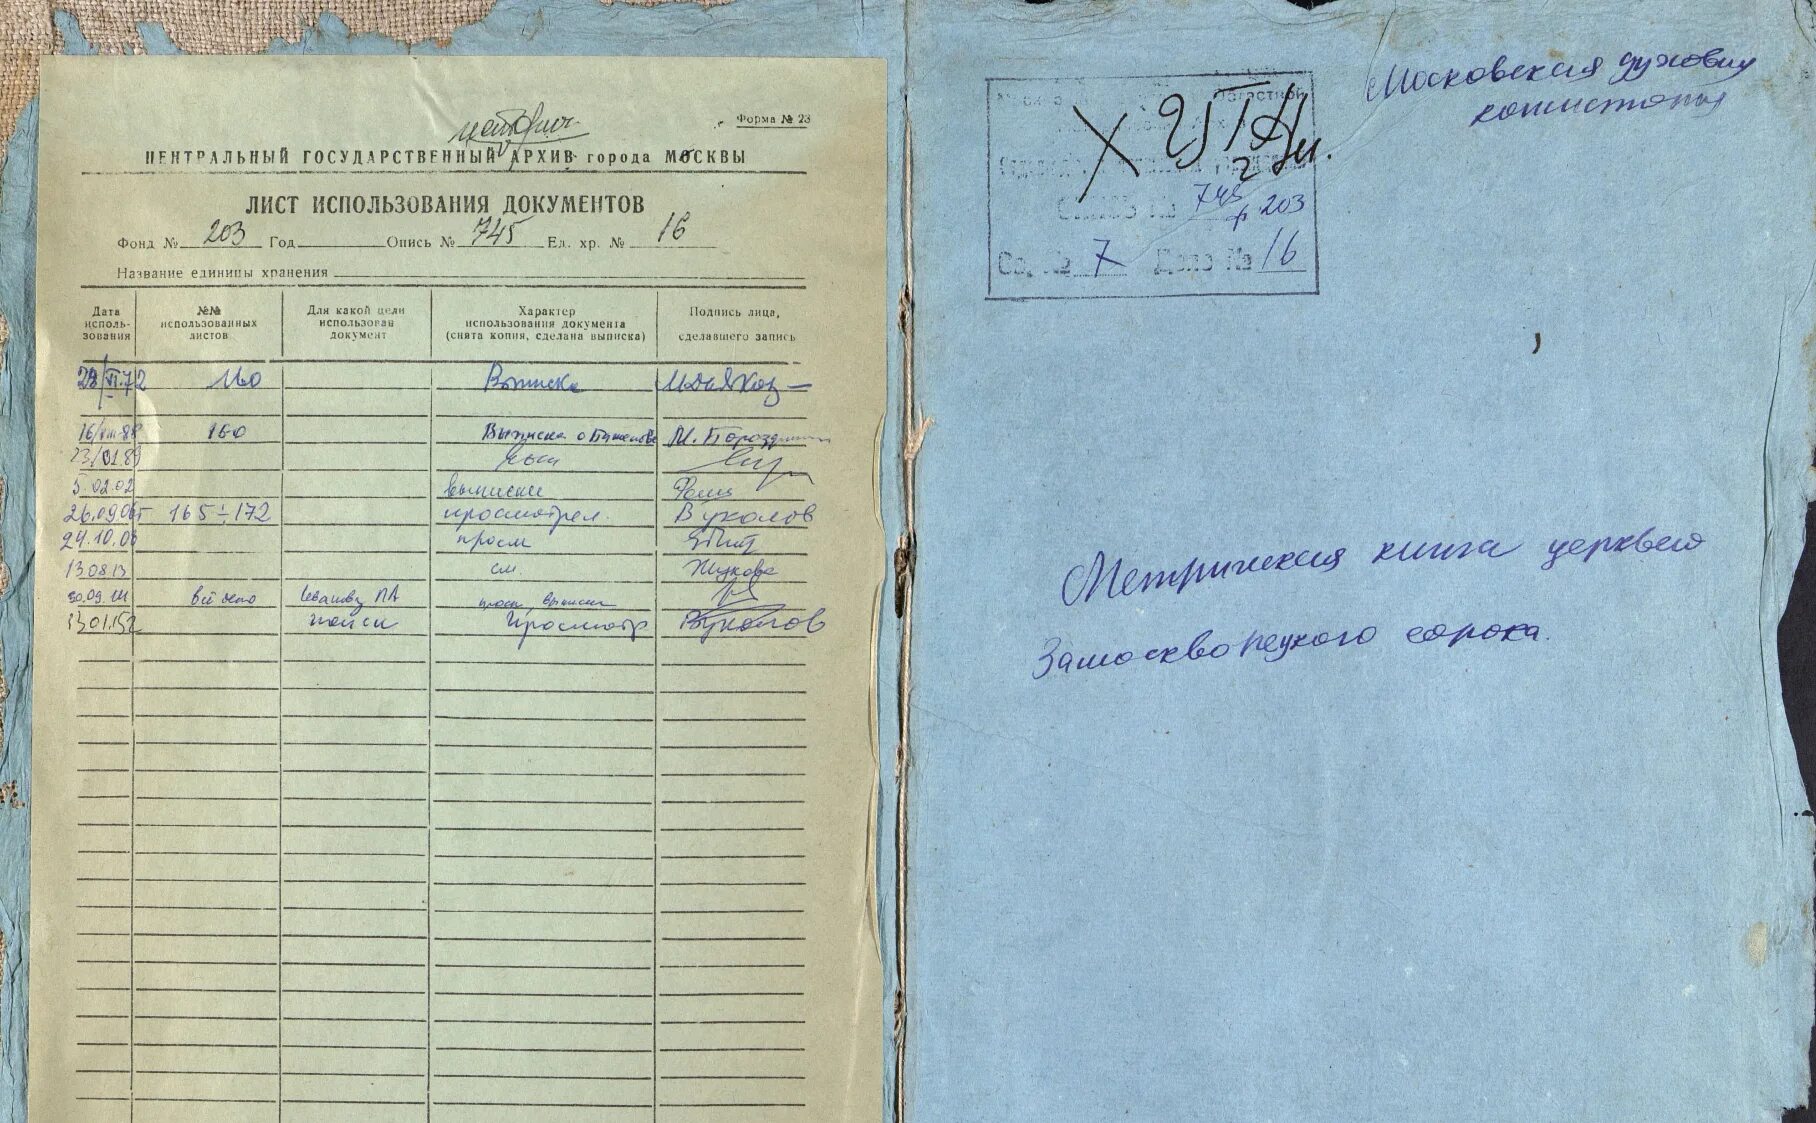 Форма № 23
историч.
ЦЕНТРАЛЬНЫЙ ГОСУДАРСТВЕННЫЙ АРХИВ города МОСКВЫ
ЛИСТ ИСПОЛЬЗОВАНИЯ ДОКУМЕНТОВ
Фонд № 203 Год Опись № 745 Ед. хр. № 16
Название единицы хранения
Дата исполь- зования
№№ использованных листов
Для какой цели использован документ
Характер использования документа (снята копия, сделана выписка)
Подпись лица, сделавшего запись
28/VI.72 160 Выписка
16/VIII-88 160 Выписка о М.
23/01.89
5.02.02 выписки
26.09.06 165-172 просмотрел. Вуколов
24.10.06 просм
13.08.13 см. Жукова
30.09.14 всё дело просм, выписки
13.01.15 поиск Просмотр Вуколов
Московская духовная
консистория
ЦГИА
г. М.
ОПИСЬ № 745 ф 203
Св. № 7 Дело № 16
Метрическая книга церквей
Замоскворецкого сорока.